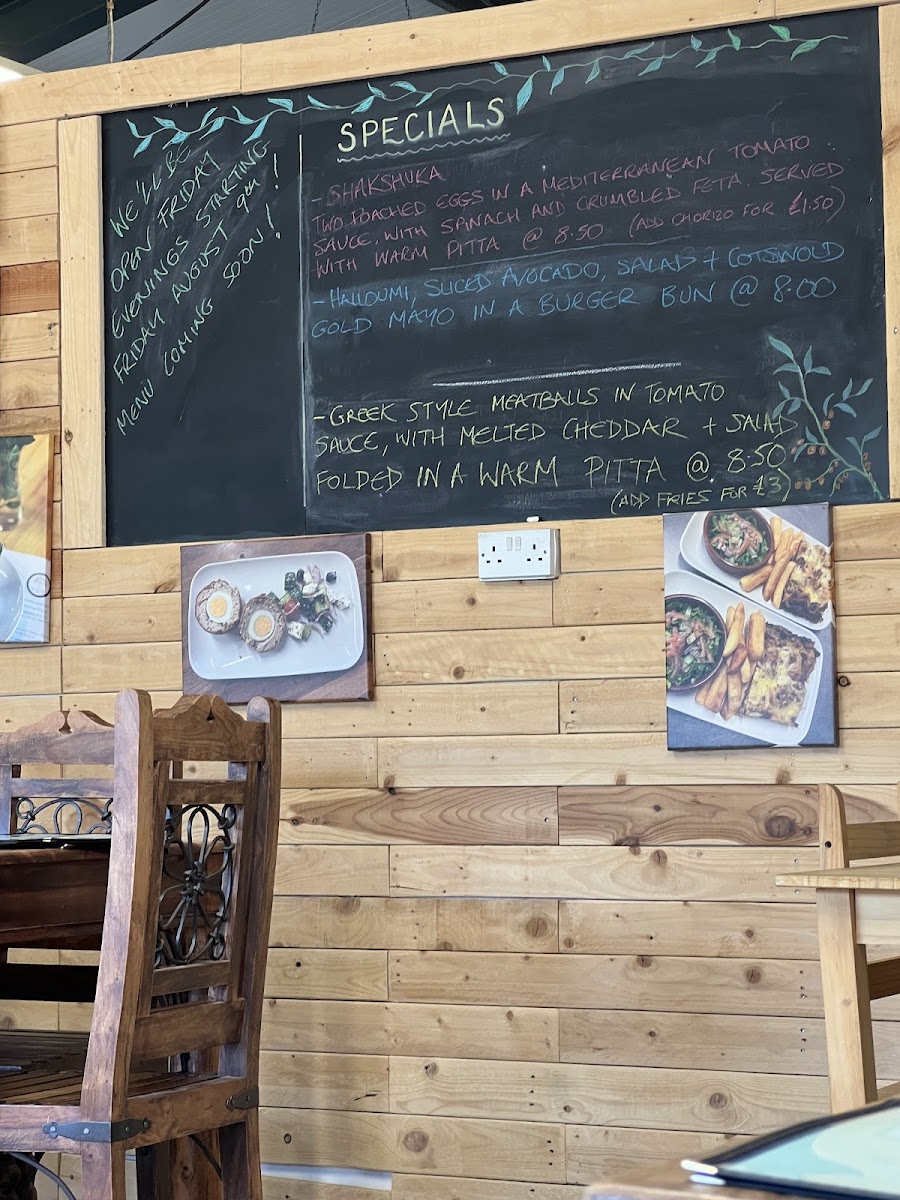 WE'LL BE
OPEN FRIDAY
EVENINGS STARTING
FRIDAY AUGUST 9TH!
MENU COMING SOON!
SPECIALS
- SHAKSHUKA
TWO POACHED EGGS IN A MEDITERRANEAN TOMATO
SAUCE, WITH SPINACH AND CRUMBLED FETA. SERVED
WITH WARM PITTA @ 8:50 (ADD CHORIZO FOR £1.50)
- HALLOUMI, SLICED AVOCADO, SALAD + COTSWOLD
GOLD MAYO IN A BURGER BUN @ 8:00
- GREEK STYLE MEATBALLS IN TOMATO
SAUCE, WITH MELTED CHEDDAR + SALAD
FOLDED IN A WARM PITTA @ 8:50
(ADD FRIES FOR £3)